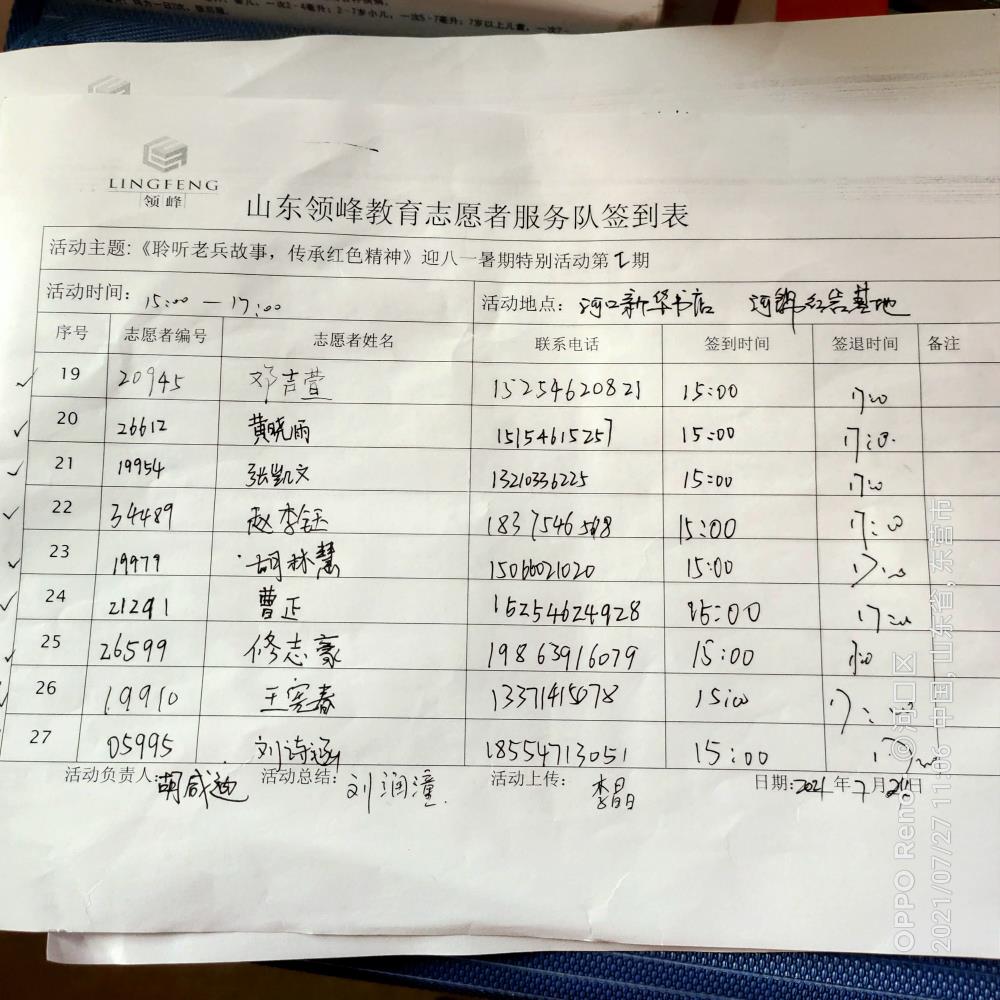 次2-4毫升；2-7岁小儿，一次5-7毫升；7岁以上儿童，一次7-
LINGFENG
领峰
山东领峰教育志愿者服务队签到表
活动主题：《聆听老兵故事，传承红色精神》迎八一暑期特别活动第2期
活动时间： 15:00 — 17:00 活动地点： 河口新华书店 基地
序号 志愿者编号 志愿者姓名 联系电话 签到时间 签退时间 备注
19 20945 邓言萱 15254620821 15:00 17:00
20 26612 黄晓雨 15154615257 15:00 17:00
21 19954 张凯文 13210336225 15:00 17:00
22 34489 赵李钰 15:00 17:00
23 19979 胡林慧 15066021020 15:00 17:00
24 21291 曹正 15254624928 15:00 17:00
25 26599 修志豪 19863916079 15:00
26 19910 王宪春 13371415078 15:00 17:00
27 05995 刘诗涵 18554713051 15:00
活动负责人： 胡咸迪 活动总结： 刘润潼 活动上传： 李晶 日期：2021年7月 日
OPPO Reno @河口区
2021/07/27 11:06 中国，山东省，东营市